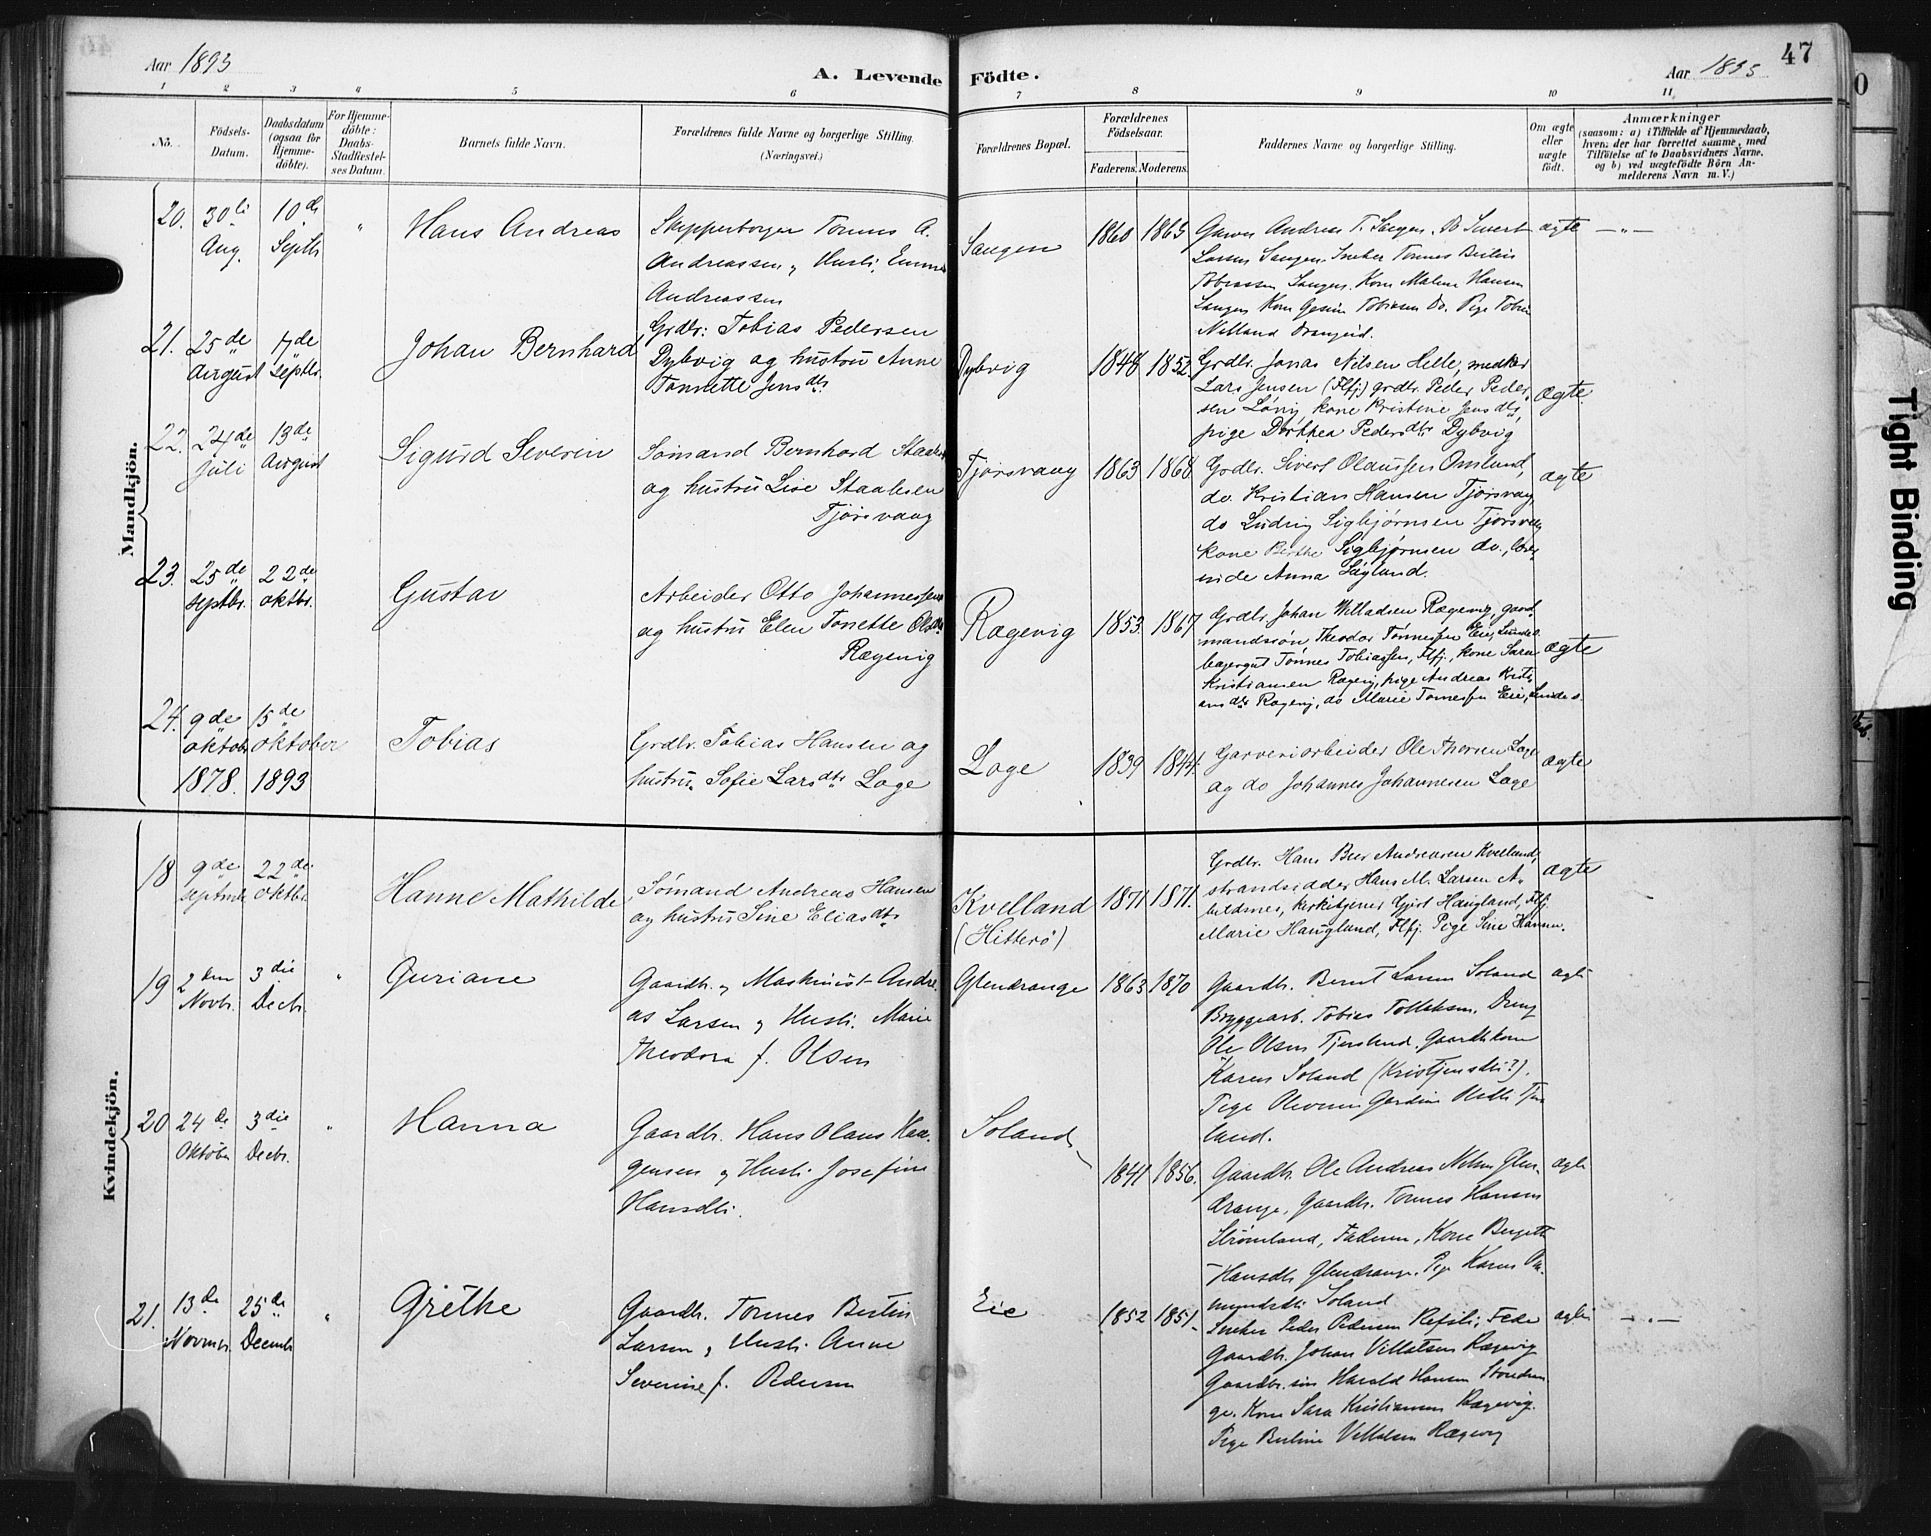 Aar 1893
A. Levende Födte.
Aar 1893
47
1 2 3 4 5 6 7 8 9 10 11
No.
Födsels-
Datum.
Daabsdatum
(ogsaa for
Hjemme-
döbte).
For Hjemme-
döbte:
Daabs-
Stadfæstel-
ses Datum.
Barnets fulde Navn.
Forældrenes fulde Navne og borgerlige Stilling.
(Næringsvei.)
Forældrenes Bopæl.
Forældrenes
Födselsaar.
Faderens. Moderens.
Faddernes Navne og borgerlige Stilling.
Om ægte
eller
uægte
födt.
Anmærkninger
(saasom: a) i Tilfælde af Hjemmedaab,
hvem der har forrettet samme, med
Tilföielse af to Daabsvidners Navne,
og b) ved uægtefödte Börn An-
melderens Navn m. V.)
Mandkjön.
20.
30 Aug.
10 de Septb.
"
Hans Andreas
Skipperborger Tønnes A.
Andreassen & Hustr. Emma
Andreassen
Saugen
1860 1863
Garver Andreas T. Saugen, Do Sivert
Larsen Saugen. Sneker Tønnes Bertin
Tobiassen Saugen. Kone Malene Hansen
Saugen Kone Gesine Tobiesen Do. Pige
ægte
— " —
21.
25 de August
7 de Septbr.
Johan Bernhard
Grdbr: Tobias Pedersen
Dybvig og hustru Anne
Tonnette Jensdtr
Dybvig
1848 1852
Grdbr. Jonas Nilsen Helle,
Lars Jensen (Flfj.) grdbr. Peder Peder-
sen kone Kristine Jensdtr,
pige Dorthea Pedersdtr Dybvig
ægte
22.
24 de juli
13 de August
Sigurd Severin
Sømand Bernhard
og hustru Lise Staalesen
Tjørsvaag
Tjorsvaag
1863 1868
Grdbr. Sivert Olaussen Omland,
do. Kristian Hansen Tjørsvaag
do Ludvig Sigbjørnsen Tjørsvaag
kone Berthe Sigbjørnsen do.,
Anna
ægte
23.
25 de septbr.
22 de oktbr.
Gustav
Arbeider Otto Johannessen
og hustru Elen Tonette Olsdtr
Rægevig
Rægevig
1853 1867
Grdbr. Johan Willadsen Rægevig, gaard-
mandssøn Theodor Tønnessen Eie,
Tønnes Tobiassen, Flfj., kone Sara
Kristiansen Rægevig, pige Andrea
Rægevig, do Marie Tønnessen Eie,
ægte
24.
9 de oktob. 1878.
15 de oktober 1893
Tobias
Grdbr. Tobias Hansen og
hustru Sofie Larsdtr Loge
Loge
1839 1844.
Garveriarbeider Ole Thorsen Loge
og do Johannes Johannesen Loge
ægte
Kvindekjön.
18
9 de
22 de oktbr.
Hanne Mathilde
Sømand Andreas Hansen
og hustru Sine Eliasdtr
Kvelland
(Hitterø)
1871 1871.
Grdbr. Hans Andreasen Kvelland,
strandsidder Hans M. Larsen
kirketjener Gjert Haugland, Flfj.
Marie Haugland, Flfj. Pige Sine Hansen.
ægte
19
2 den Novbr.
3 die Decbr.
"
Guriane
Gaardb. & Maskinist Andre-
as Larsen & Hustr. Marie
Theodora f. Olsen
Glendrange
1863 1870
Gaardb. Bernt Larsen Soland
Bryggearb. Tobias Tollaksen. Dreng
Ole Olsen Tjersland. Gaardbkone
Karen Soland (Kristjensdtr?).
Pige
land.
ægte
20
24 de Oktober
3 die Decbr.
"
Hanna
Gaardb. Hans Olaus Haa-
gensen & Hustr. Josefine
Hansdtr.
Soland
1841 1856.
Gaardb. Ole Andreas Nilsen Glen-
drange, Gaardb. Tønnes Hansen
Strømland, Faderen, Kone Bergette
Hansdtr Glendrange. Pige Karen
Soland
ægte
21.
13 de Novembr.
25 de Decembr
"
Grethe
Gaardb. Tønnes Bertin
Larsen & Hustr. Anne
Severine f. Pedersen
Eie
1852 1851
Sneker Peder Pedersen Refsti, Feda
Gaardb. Johan Villatsen Rægevig
Gaardbr. søn Harald Hansen
Kone Sara Kristiansen Rægevig.
Pige Berline Villatsen Rægevig
ægte
— " —
Tight Binding